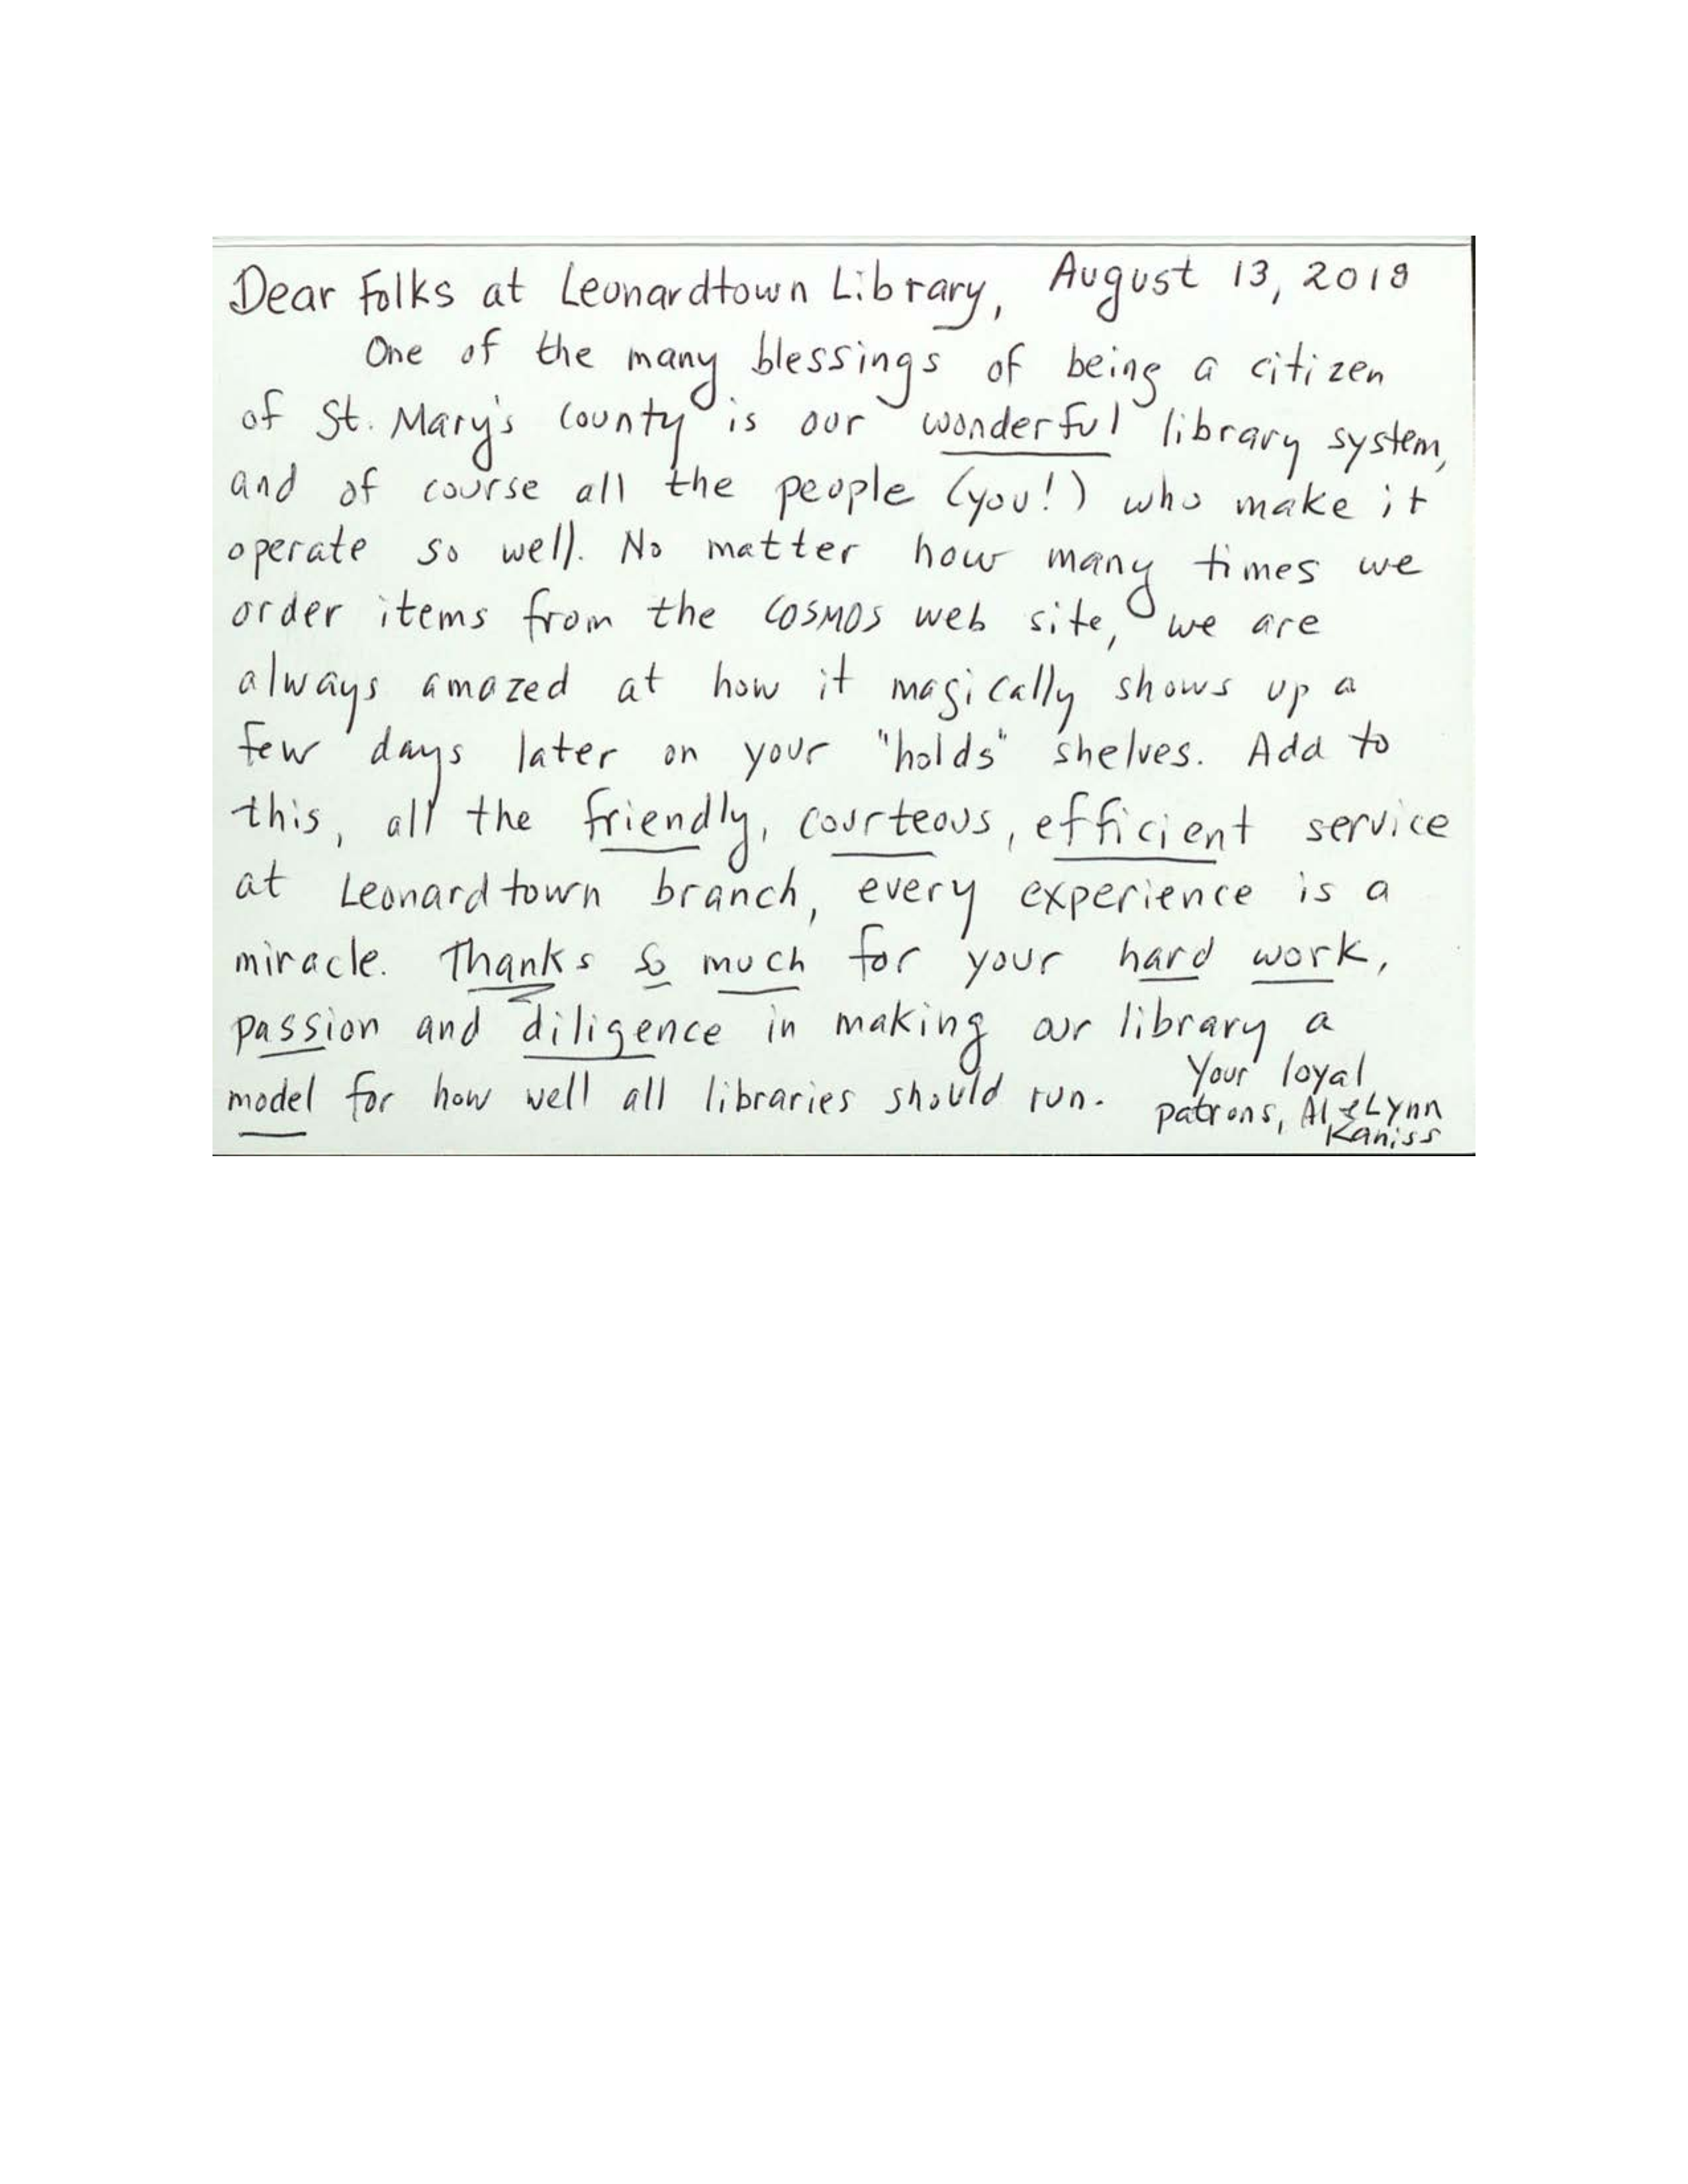 Dear Folks at Leonardtown Library, August 13, 2018
One of the many blessings of being a citizen
of St. Mary's County is our wonderful library system,
and of course all the people (you!) who make it
operate so well. No matter how many times we
order items from the COSMOS web site, we are
always amazed at how it magically shows up a
few days later on your "holds" shelves. Add to
this, all the friendly, courteous, efficient service
at Leonardtown branch, every experience is a
miracle. Thanks so much for your hard work,
passion and diligence in making our library a
model for how well all libraries should run.
Your loyal
patrons, Al & Lynn
Kaniss